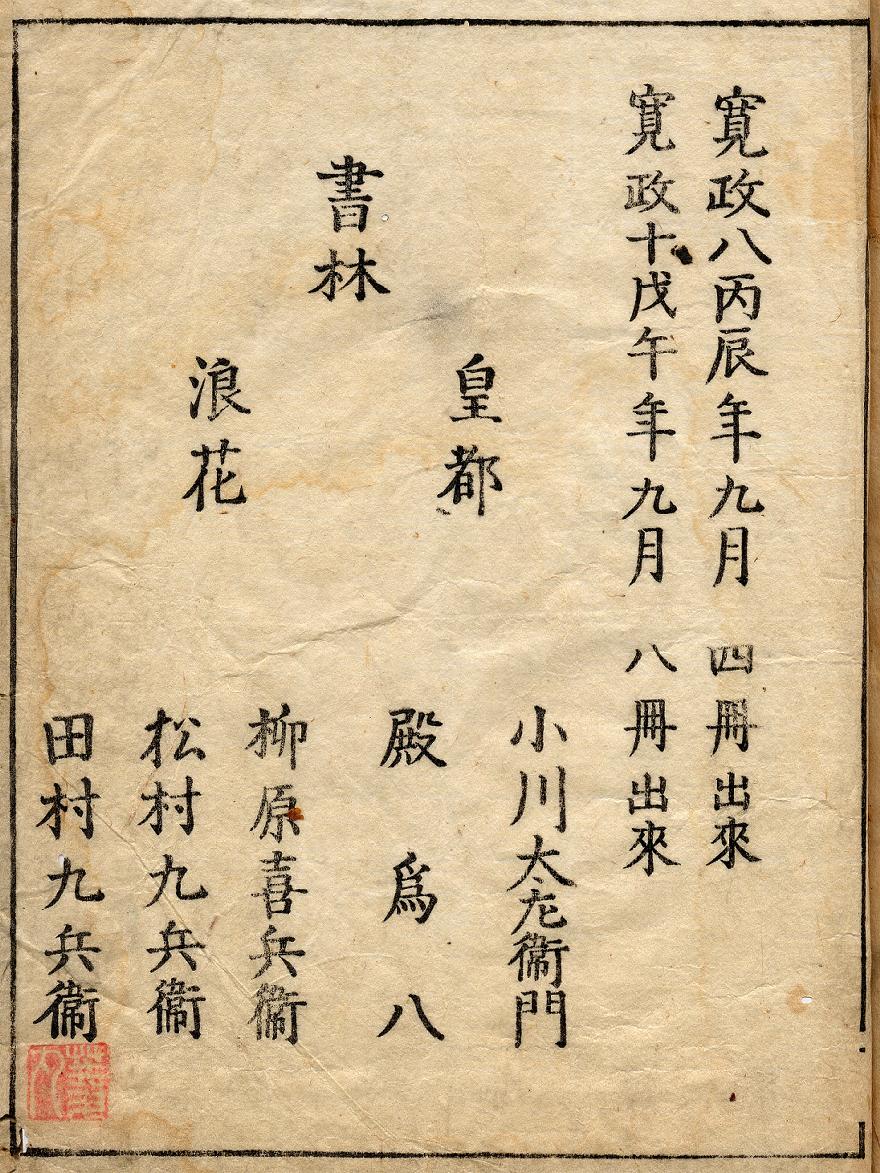 寛政八丙辰年九月 四冊出來
寛政十戊午年九月 八冊出來
皇都
小川太左衞門
殿爲八
書林
浪花
柳原喜兵衞
松村九兵衞
田村九兵衞